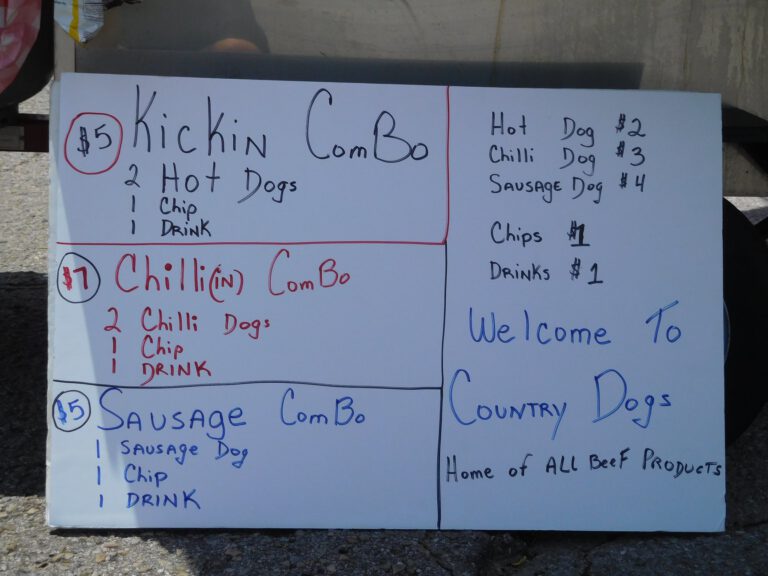 $5 Kickin ComBo
2 Hot Dogs
1 Chip
1 DRINK
$7 Chilli(iN) ComBo
2 Chilli Dogs
1 Chip
1 DRINK
$5 SAUSAGE ComBo
1 SAUSAGE Dog
1 Chip
1 DRINK
Hot Dog $2
Chilli Dog $3
SAUSAGE Dog $4
Chips $1
DRINKS $1
Welcome To
COUNTRY Dogs
Home of ALL BeeF PRODUCTS